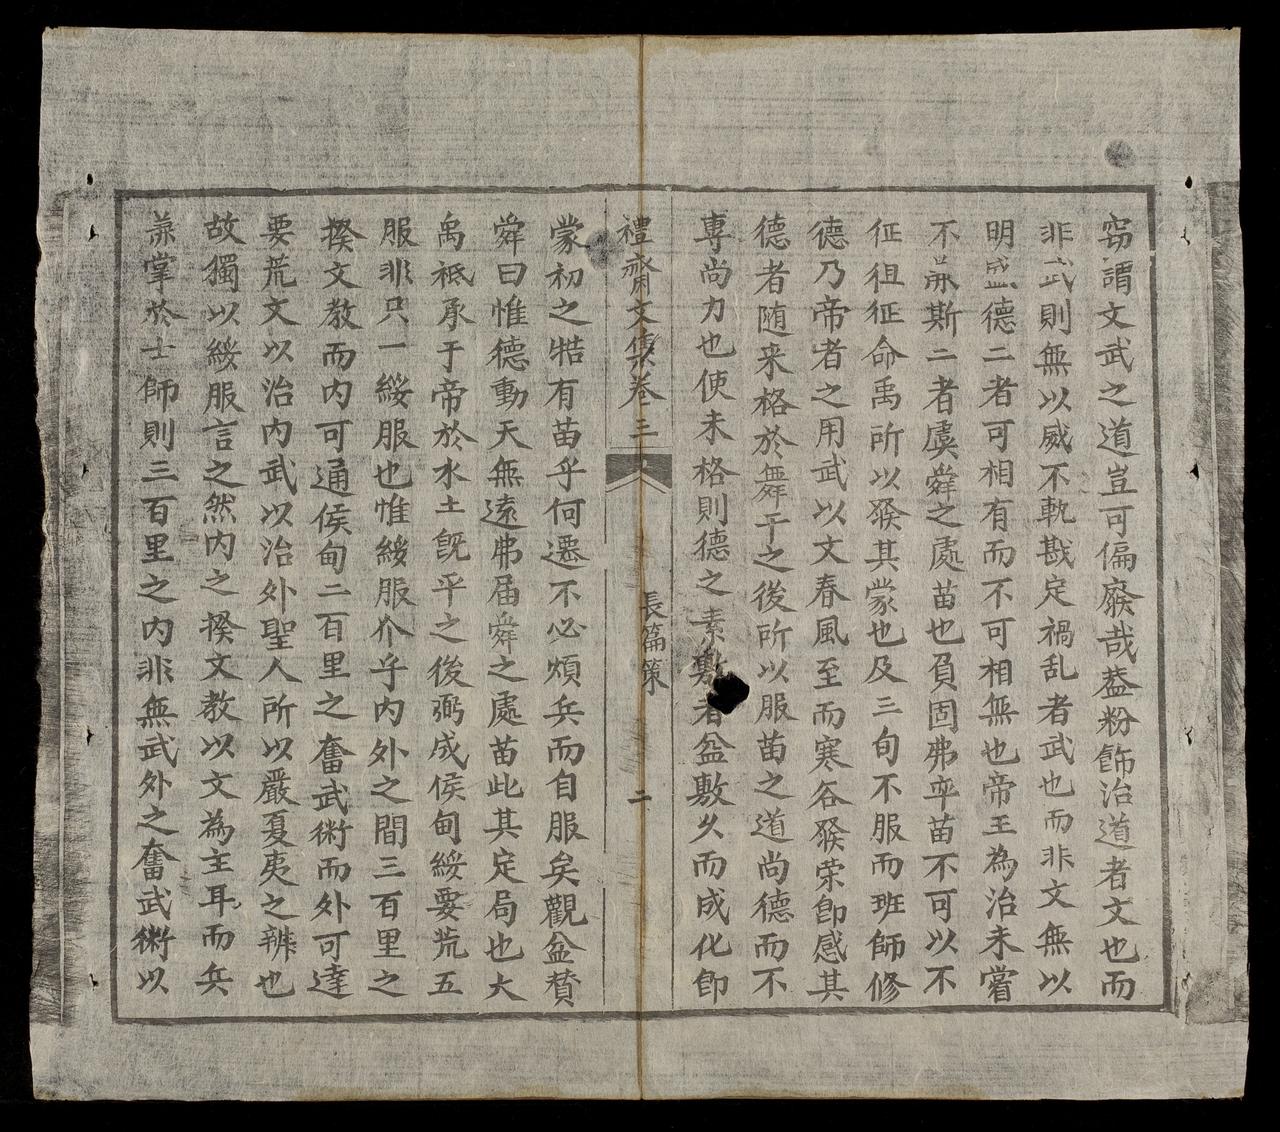 窃謂文武之道豈可偏廢哉盖粉飾治道者文也而
非武則無以威不軌戡定禍乱者武也而非文無以
明盛德二者可相有而不可相無也帝王為治未嘗
不兼斯二者虞舜之處苗也負固弗率苗不可以不
征徂征命禹所以發其蒙也及三旬不服而班師修
德乃帝者之用武以文春風至而寒谷發荣卽感其
德者随来格於舞干之後所以服苗之道尚德而不
專尚力也使未格則德之素敷者益敷久而成化卽
禮齋文集卷三
長篇策
二
蒙初之牿有苗乎何遷不必煩兵而自服矣觀益贊
舜曰惟德動天無遠弗届舜之處苗此其定局也大
禹祗承于帝於水土旣平之後弼成侯甸綏要荒五
服非只一綏服也惟綏服介乎内外之間三百里之
揆文教而内可通侯甸二百里之奮武術而外可達
要荒文以治内武以治外聖人所以嚴夏夷之辨也
故獨以綏服言之然内之揆文教以文為主耳而兵
兼掌於士師則三百里之内非無武外之奮武術以